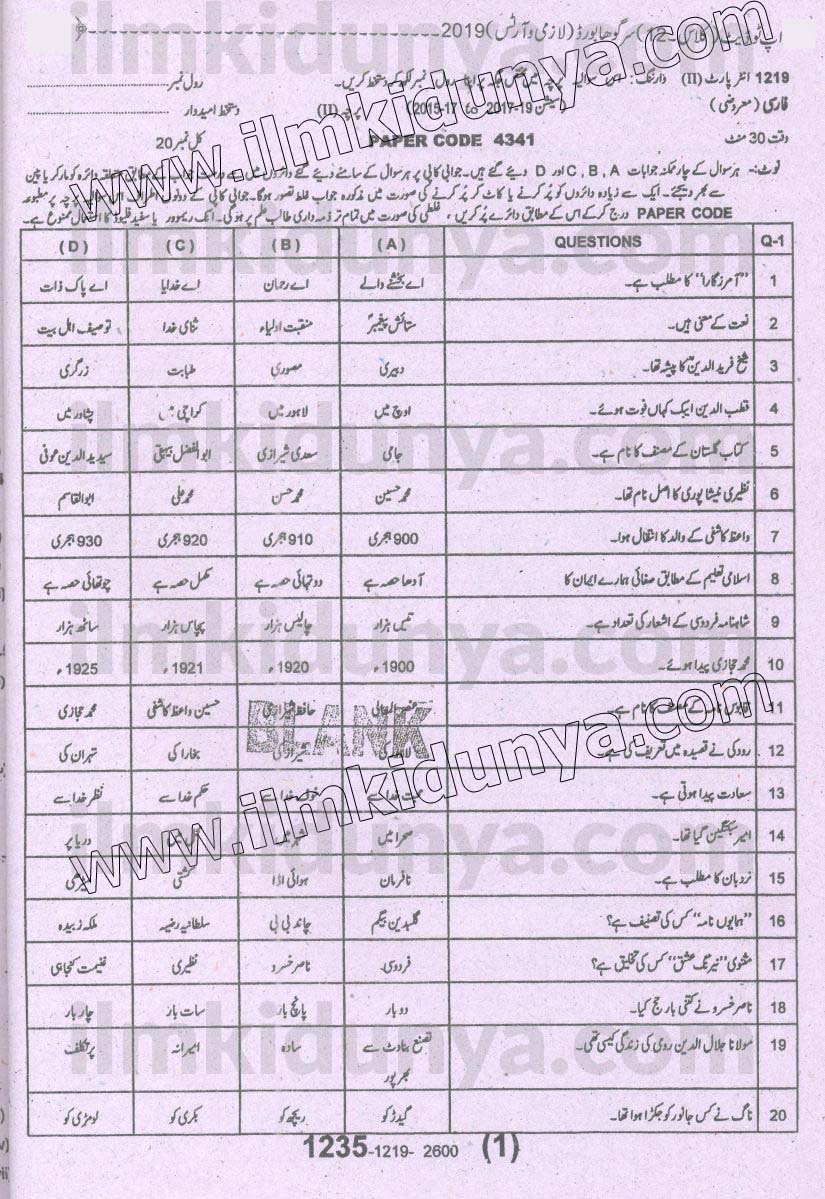 اپ ٹو ڈیٹ (کلاس -12) سرگودھا بورڈ (لازمی و آرٹس) 2019
1219 انٹر پارٹ (II) وارننگ: اس سوالیہ پرچہ میں مختص جگہ پر اپنا رول نمبر لکھ کر دستخط کریں۔ رول نمبر
فارسی (معروضی) (سیشن 19-2017 to 17-2015) پرچہ (II) دستخط امیدوار
وقت 30 منٹ PAPER CODE 4341 کل نمبر 20
نوٹ:- ہر سوال کے چار ممکنہ جوابات A ,B ,C اور D دیئے گئے ہیں۔ جوابی کاپی پر ہر سوال کے سامنے دیئے گئے دائروں میں سے درست جواب کے مطابق متعلقہ دائرہ کو مارکر یا پین
سے بھر دیجئے۔ ایک سے زیادہ دائروں کو پُر کرنے یا کاٹ کر پُر کرنے کی صورت میں مذکورہ جواب غلط تصور ہوگا۔ جوابی کاپی کے دونوں اطراف اس سوالیہ پرچہ پر مطبوعہ
PAPER CODE درج کر کے اس کے مطابق دائرے پُر کریں، غلطی کی صورت میں تمام تر ذمہ داری طالب علم پر ہوگی۔ انک ریموور یا سفید فلیوڈ کا استعمال ممنوع ہے۔
Q-1 QUESTIONS (A) (B) (C) (D)
1 "آمرزگارا" کا مطلب ہے۔ اے بخشنے والے اے رحمان اے خدایا اے پاک ذات
2 نعت کے معنی ہیں۔ ستائش پیغمبرؐ منقبت اولیاء ثنای خدا توصیف اہل بیت
3 شیخ فرید الدینؒ کا پیشہ تھا۔ دبیری مصوری طبابت زرگری
4 قطب الدین ایبک کہاں فوت ہوئے۔ اوچ میں لاہور میں کراچی میں پشاور میں
5 کتاب گلستان کے مصنف کا نام ہے۔ جامی سعدی شیرازی ابوالفضل بیہقی سدید الدین عوفی
6 نظیری نیشاپوری کا اصل نام تھا۔ محمد حسین محمد حسن محمد علی ابوالقاسم
7 واعظ کاشفی کے والد کا انتقال ہوا۔ 900 ہجری 910 ہجری 920 ہجری 930 ہجری
8 اسلامی تعلیم کے مطابق صفائی ہمارے ایمان کا آدھا حصہ ہے دو تہائی حصہ ہے مکمل حصہ ہے چوتھائی حصہ ہے
9 شاہنامہ فردوسی کے اشعار کی تعداد ہے۔ تیس ہزار چالیس ہزار پچاس ہزار ساٹھ ہزار
10 محمد حجازی پیدا ہوئے۔ 1900ء 1920ء 1921ء 1925ء
11 قابوس نامہ کے مصنف کا نام ہے۔ عنصر المعالی حافظ شیرازی حسین واعظ کاشفی محمد حجازی
12 رودکی نے قصیدہ میں تعریف کی ہے۔ لاہور کی شیراز کی بخارا کی تہران کی
13 سعادت پیدا ہوتی ہے۔ خدا سے خوف خدا سے حکم خدا سے نظر خدا سے
14 امیر سبکتگین گیا تھا۔ صحرا میں شہر میں دریا پر
15 نردبان کا مطلب ہے۔ نافرمان ہوائی اڈا کشتی
16 "ہمایوں نامہ" کس کی تصنیف ہے؟ گلبدین بیگم چاند بی بی سلطانیہ رضیہ ملکہ زبیدہ
17 مثنوی "نیرنگ عشق" کس کی تخلیق ہے؟ فردوسی ناصر خسرو نظیری غنیمت کنجاہی
18 ناصر خسرو نے کتنی بار حج کیا۔ دو بار پانچ بار سات بار چار بار
19 مولانا جلال الدین رومی کی زندگی کیسی تھی۔ تصنع بناوٹ سے بھرپور سادہ امیرانہ پر تکلف
20 ناگ نے کس جانور کو جکڑا ہوا تھا۔ گیدڑ کو ریچھ کو بکری کو لومڑی کو
BLANK
1235-1219- 2600 (1)
www.ilmkidunya.com
www.ilmkidunya.com
ilmkidunya.com
ilmkidunya.com
ilmkidunya.com
ilmkidunya.com
ilmkidunya.com
ilmkidunya.com